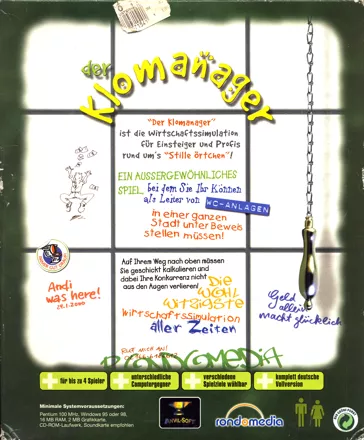 der
Klomanager
"Der Klomanager"
ist die Wirtschaftssimulation
für Einsteiger und Profis
rund um's "Stille örtchen"!
EIN AUSSERGEWÖHNLICHES
SPIEL, bei dem Sie Ihr Können
als Leiter von WC-ANLAGEN
in einer ganzen
Stadt unter Beweis
stellen müssen!
Auf Ihrem Weg nach oben müssen
Sie geschickt kalkulieren und
dabei Ihre Konkurrenz nicht
aus den Augen verlieren!
Die
wohl
witzigste
Wirtschaftssimulation
aller Zeiten
Andi
was here!
Geld
allein
macht glücklich
Ruf mich an!
für bis zu 4 Spieler
unterschiedliche
Computergegner
verschiedene
Spielziele wählbar
komplett deutsche
Vollversion
Minimale Systemvoraussetzungen:
Pentium 100 MHz, Windows 95 oder 98,
16 MB RAM, 2 MB Grafikkarte,
CD-ROM-Laufwerk, Soundkarte empfohlen
rondomedia